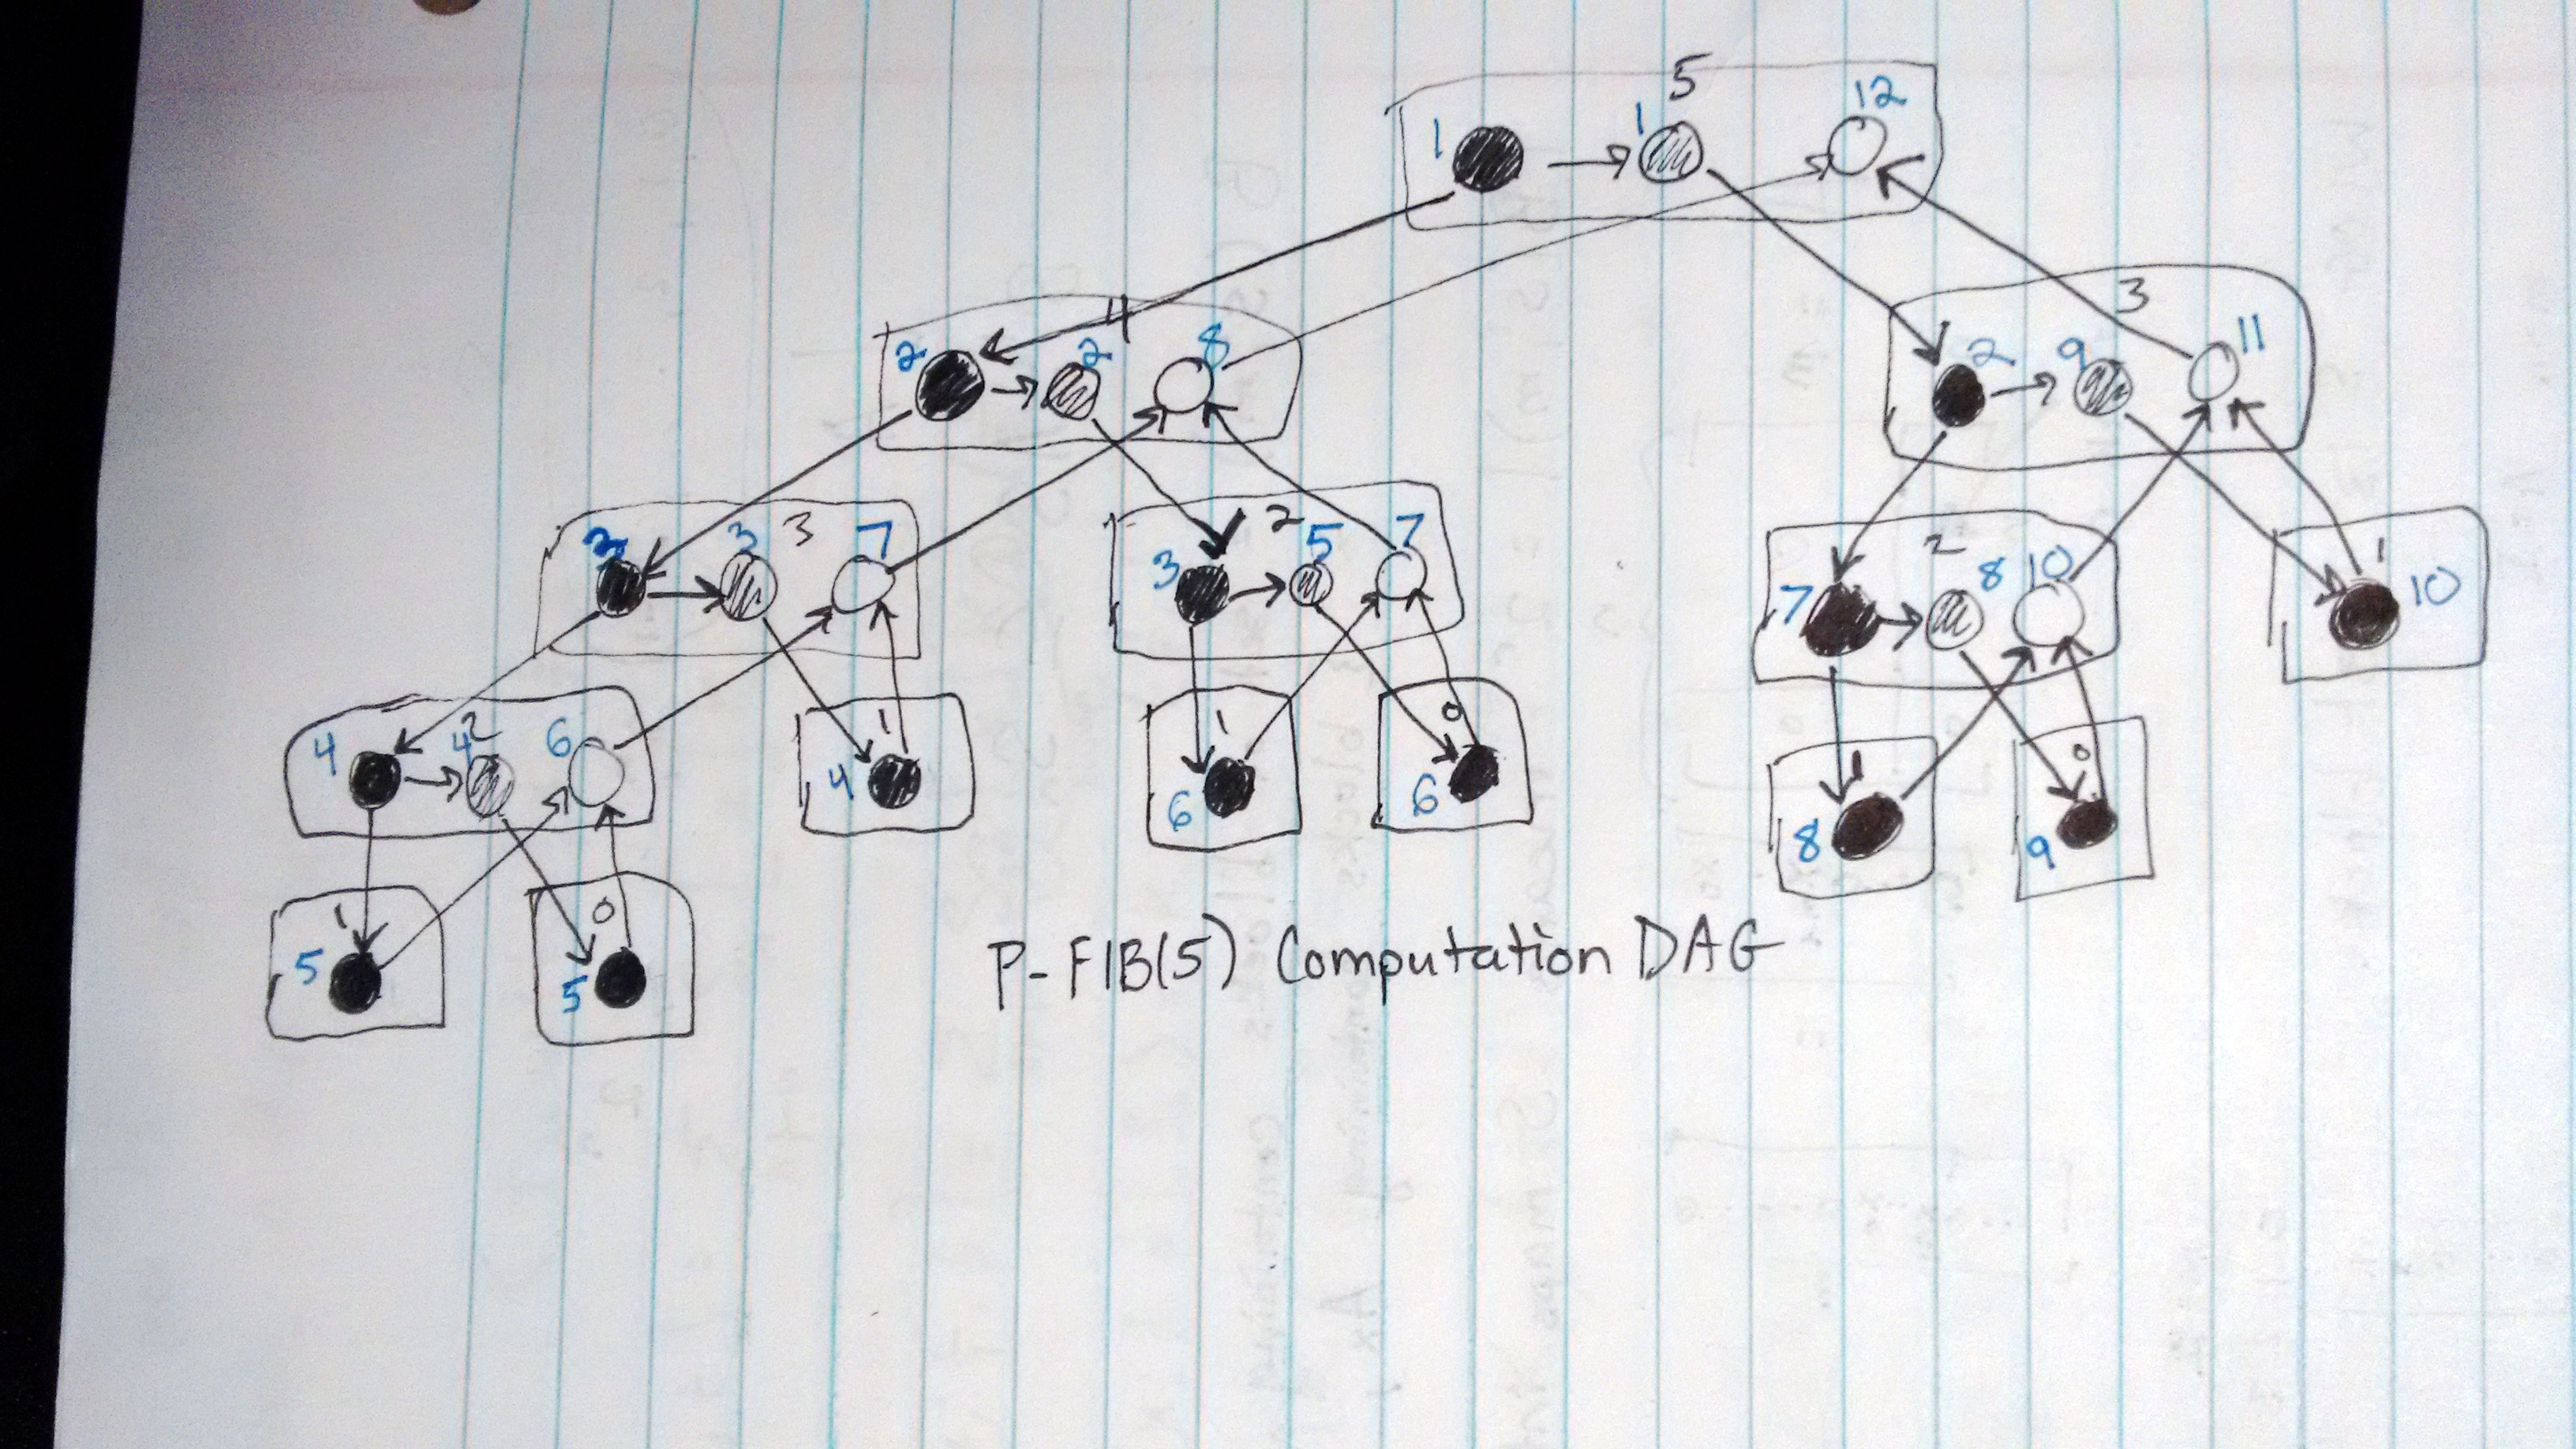 5
1 1 12
4
2 2 8
3
2 9 11
3
3 7
2
3 5 7
2
7 8 10
1
10
2
4 4 6
1
4
1
6
0
6
1
8
0
9
1
5
0
5
P-FIB(5) Computation DAG